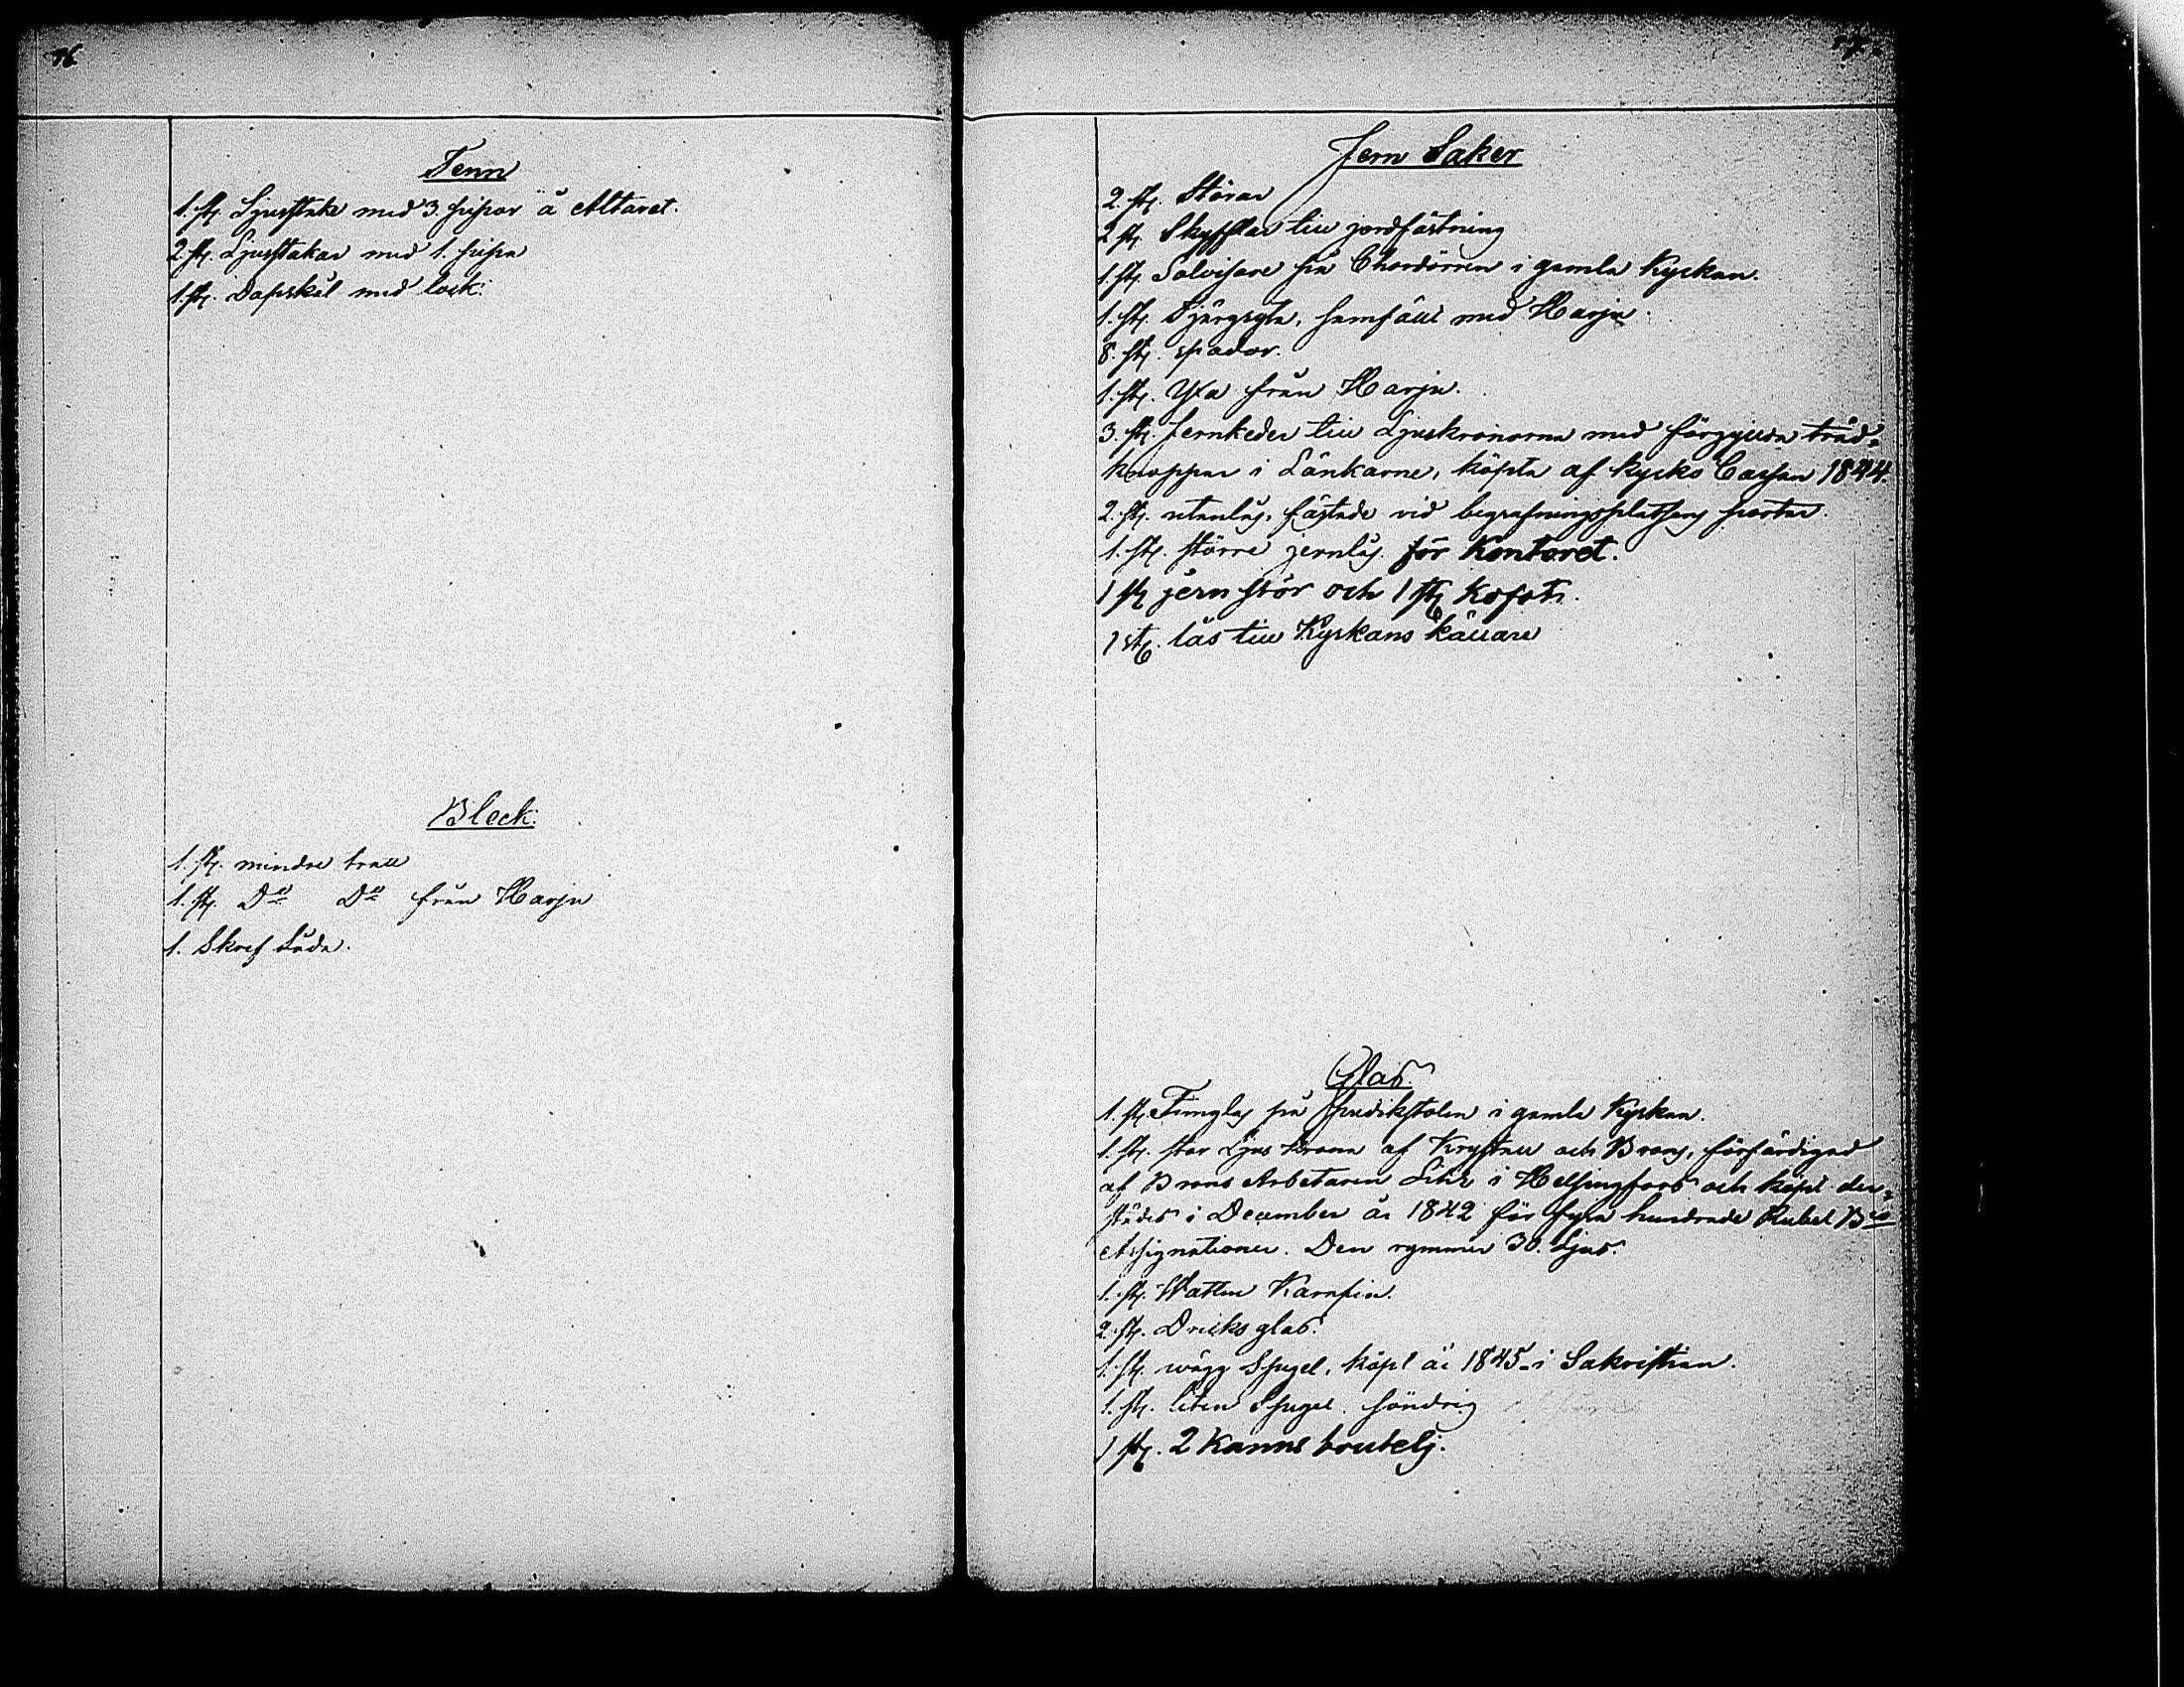 76.
Tenn
1. st. Ljusstake med 3. pipor å Altaret.
2. st. Ljusstakar med 1. pipa
1. st. Dopskål med lock.
Bleck.
1. st. mindre tratt
1. st. Do Do från Harju
1. Skrif Låda.
Jern Saker
2. st. Störar
2 st. Skyfflar till jordfästning
1. st. Solvisare på Chordörren i gamla Kyrkan.
1. st. samfält med Harju.
8. st. spador.
1. st. Yxa från Harju.
3. st. Jernkeder till Ljuskronorna med förgyllda träd-
knoppar i Länkarne, köpta af Kyrko Cassan 1844.
2. st. utanlås, fästade vid begrafningsplatsens portar.
1. st. större jernlås för Kontoret.
1 st jern stör och 1 st Kofot.
1 st. lås till Kyrkans källare
Glas.
1. st. Timglas på predikstolen i gamla Kyrkan.
1. st. stor Ljus Krona af Krystall och Brons, förfärdigad
af Brons Arbetaren i Helsingfors och köpt der-
städes i December år 1842 för fyra hundrade Rubel Bco
Assignationer. Den rymmer 30. Ljus.
1. st. Watten Karafin.
2. st. Dricks glas.
1. st. wägg Spegel, köpt år 1845 i Sakristian.
1. st. liten Spegel. söndrig
1 st. 2 Kanns boutelj.